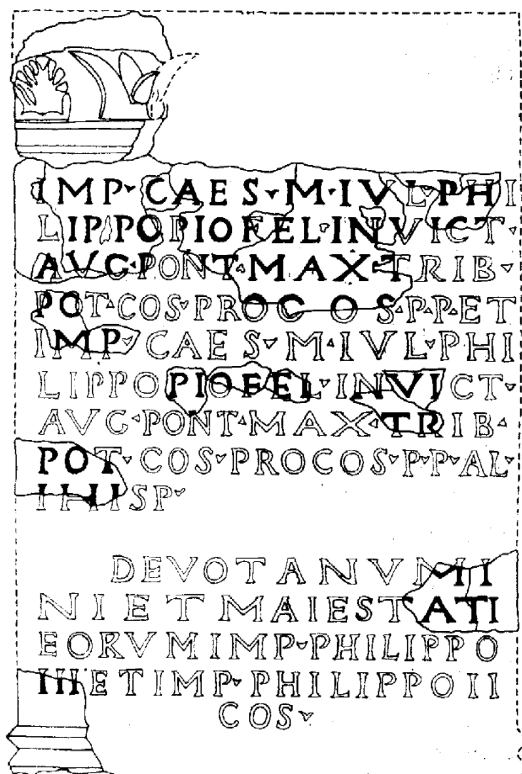 IMP·CAES·M·IVL·PHI
LIPPOPIOFEL·INVICT·
AVG·PONT·MAX·TRIB·
POT·COS·PROCOS·P·P·ET
IMP·CAES·M·IVL·PHI
LIPPOPIOFEL·INVICT·
AVG·PONT·MAX·TRIB·
POT·COS·PROCOS·P·P·AL·
IIHISP·
DEVOTA NVMI
NI ET MAIESTATI
EORVM IMP·PHILIPPO
III ET IMP·PHILIPPO II
COS·